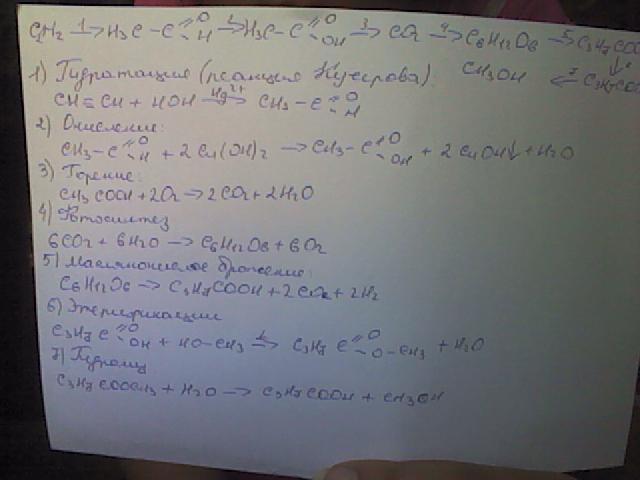 C₂H₂ —1→ H₃C – C =O –H —2→ H₃C – C =O –OH —3→ CO₂ —4→ C₆H₁₂O₆ —5→ C₃H₇COO
↓6
CH₃OH ←7— C₃H₇COO
1) Гидратация (реакция Кучерова):
CH≡CH + HOH —Hg²⁺→ CH₃ – C =O –H
2) Окисление:
CH₃ – C =O –H + 2Cu(OH)₂ → CH₃ – C =O –OH + 2CuOH↓ + H₂O
3) Горение:
CH₃COOH + 2O₂ → 2CO₂ + 2H₂O
4) Фотосинтез
6CO₂ + 6H₂O → C₆H₁₂O₆ + 6O₂
5) Маслянокислое брожение:
C₆H₁₂O₆ → C₃H₇COOH + 2CO₂ + 2H₂
6) Этерификация
C₃H₇ C =O –OH + HO–CH₃ ⇄ C₃H₇ C =O –O–CH₃ + H₂O
7) Гидролиз
C₃H₇COOCH₃ + H₂O → C₃H₇COOH + CH₃OH